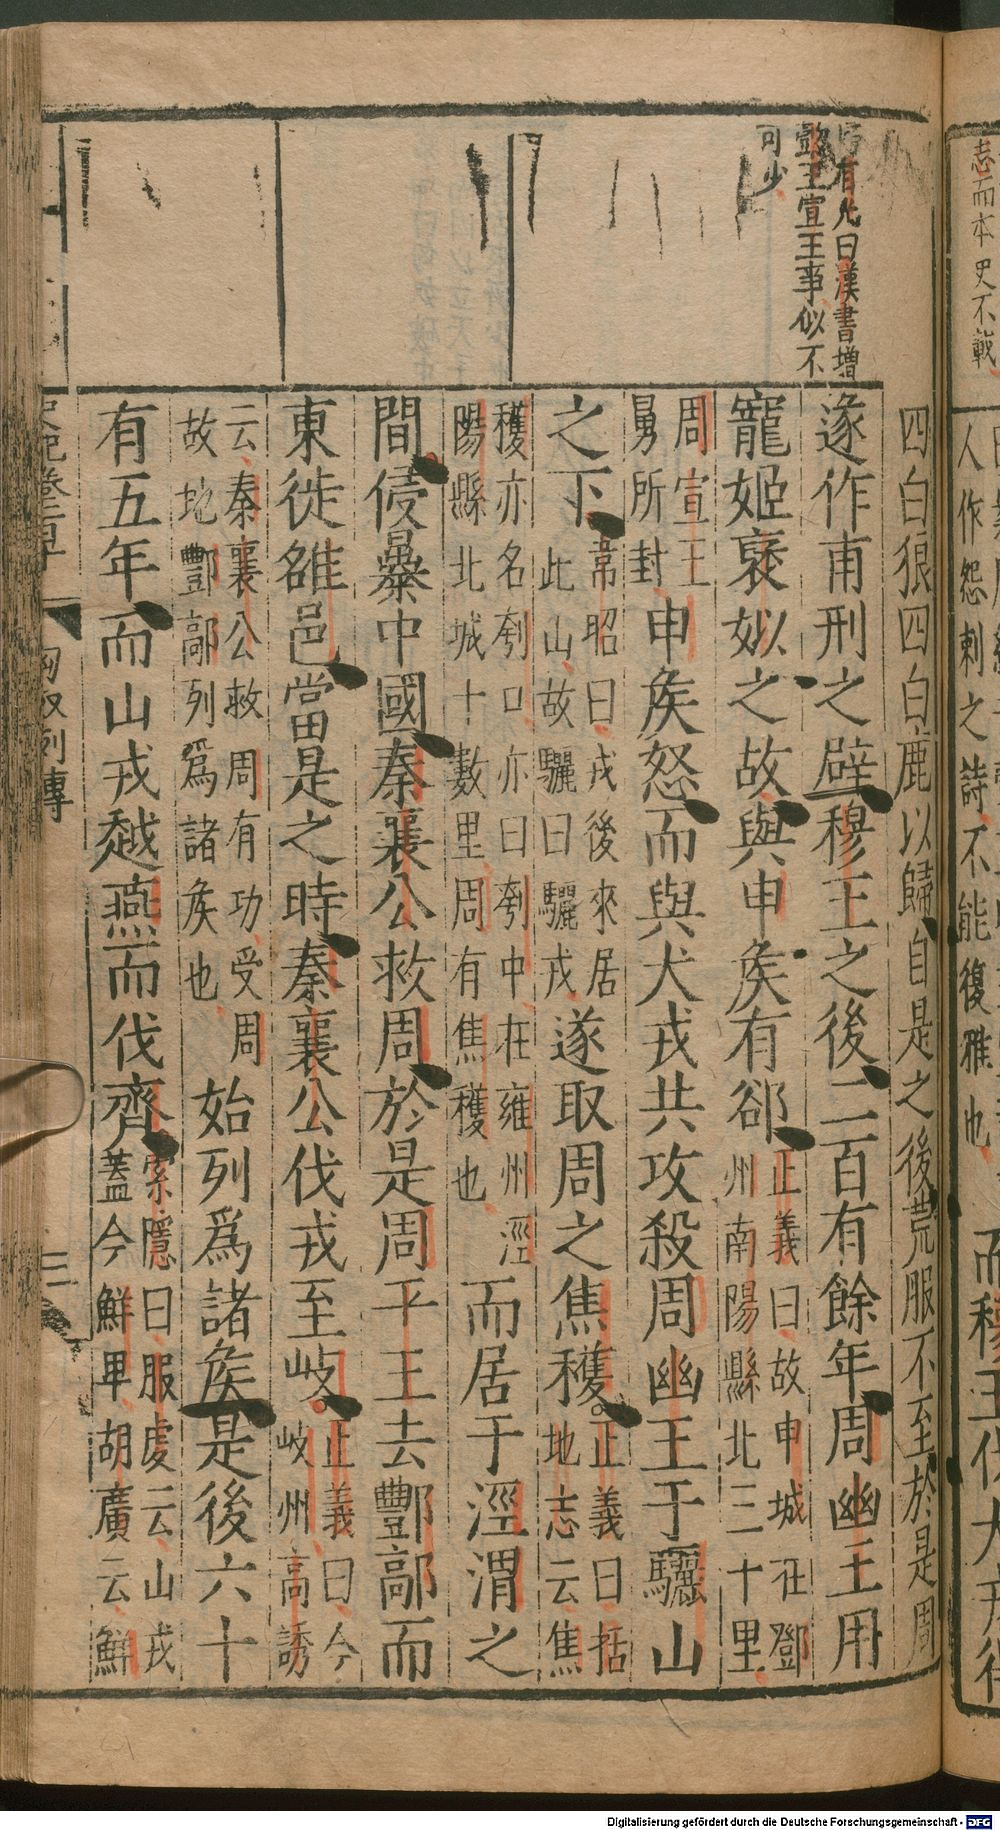 志而本史不載
人作怨刺之詩不能復雅也
有光曰漢書增
懿王宣王事似不
可少
四白狼四白鹿以歸自是之後荒服不至於是周
遂作甫刑之辟穆王之後二百有餘年周幽王用
寵姬褒姒之故與申矦有郤
正義曰故申城在鄧
州南陽縣北三十里
周宣王
舅所封
申矦怒而與犬戎共攻殺周幽王于驪山
之下
韋昭曰戎後來居
此山故驪曰驪戎
遂取周之焦穫
正義曰括
地志云焦
穫亦名刳口亦曰刳中在雍州涇
陽縣北城十數里周有焦穫也
而居于涇渭之
間侵暴中國秦襄公救周於是周平王去酆鄗而
東徙雒邑當是之時秦襄公伐戎至岐
正義曰今
岐州高誘
云秦襄公救周有功受周
故地酆鄗列爲諸矦也
始列爲諸矦是後六十
有五年而山戎越燕而伐齊
索隱曰服虔云山戎
蓋今鮮卑胡廣云鮮
匈奴列傳
三
Digitalisierung gefördert durch die Deutsche Forschungsgemeinschaft - DFG